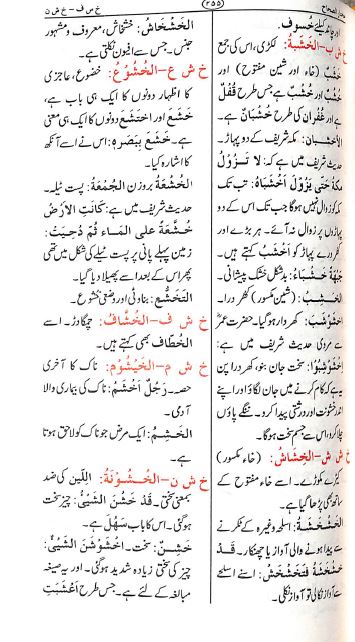 خ ص ف - خ ش ن
(۲۵۵)
خُسوف.
خ ش ب - الخَشَبَةُ: لکڑی، اس کی جمع
خَشَبٌ (خاء اور شین مفتوح) اور
خُشُبٌ اور خُشْبٌ ہے جس طرح قُفْلٌ
ہے، غُفْران کی طرح خُشْبَان ہے۔
الأَخْشَبَان: مکہ شریف کے دو پہاڑ۔
حدیث شریف میں ہے کہ: لَا تَزُوْلُ
مَكَّةُ حَتَّى يَزُوْلَ أَخْشَبَاهَا: تب تک
مکہ کو زوال نہیں ہوگا جب تک اس کے دو
پہاڑوں پر زوال نہ آئے۔ ہر بڑے اور
کھردرے پہاڑ کو اَخْشَبُ کہتے ہیں۔
جَبْهَةٌ خَشْبَاءُ: بدشکل خشک پیشانی۔
الخَشِبُ: (شین مکسور) کھردرا۔
اخْشَوْشَبَ: کھردرا ہوگیا۔ حضرت عمرؓ
سے مروی حدیث شریف میں ہے:
اخْشَوْشِبُوْا: سخت جان بنو، کھردرا پن
ہے کہ کام کرنے میں جان لگاؤ اور اپنے
اندر خشونت اور درشتی پیدا کرو۔ ننگے پاؤں
چلا کرو، اس سے جسم سخت ہوگا۔
خ ش ش - الخِشَاشُ: (خاء مکسور)
کیڑے مکوڑے۔ اسے خاء مفتوح کے
ساتھ بھی پڑھا گیا ہے۔
الخَشْخَشَةُ: اسلحہ وغیرہ کے ٹکرنے
سے پیدا ہونے والی آواز یا جھنکار۔ قَدْ
خَشْخَشَهُ فَتَخَشْخَشَ: اس نے اسلحے
سے آواز نکالی تو آواز نکلی۔
الخَشْخَاشُ: خشخاش، معروف و مشہور
جنس۔ جس سے افیون نکلتی ہے۔
خ ش ع - الخُشُوْعُ: خضوع، عاجزی
کا اظہار دونوں کا ایک ہی باب ہے،
خَشَعَ اور اخْتَشَعَ دونوں کا ایک ہی معنی
ہے۔ خَشَعَ بِبَصَرِهِ: اس نے آنکھ
کا اشارہ کیا۔
الخُشْعَةُ بروزن الجُمْعَةُ: پست ٹیلہ۔
حدیث شریف میں ہے: كَانَتِ الأَرْضُ
خُشْعَةً عَلَى المَاءِ ثُمَّ دُحِيَتْ:
زمین پہلے پانی پر پست ٹیلے کی شکل میں تھی
پھر اس کے بعد اسے پھیلا دیا گیا۔
التَّخَشُّعُ: بناوٹی اور وضعی خشوع۔
خ ش ف - الخُشَّافُ: چمگادڑ۔ اسے
الخُطَّاف بھی کہتے ہیں۔
خ ش م - الخَيْشُوْمُ: ناک کا آخری
حصہ۔ رَجُلٌ أَخْشَمُ: ناک کی بیماری والا
آدمی۔
الخَشَمُ: ایک مرض جو ناک کو لاحق ہوتا
ہے۔
خ ش ن - الخُشُوْنَةُ: اللِّين کی ضد
بمعنی سختی۔ قَدْ خَشُنَ الشَّيْءُ: چیز سخت
ہوگئی۔ اس کا باب سَهُلَ ہے۔
خَشِنٌ: سخت۔ اخْشَوْشَنَ الشَّيْءُ:
چیز کی سختی زیادہ شدید ہوگئی۔ اور یہ صیغہ
مبالغہ کے لئے ہے۔ جس طرح أَعْشَبَتِ